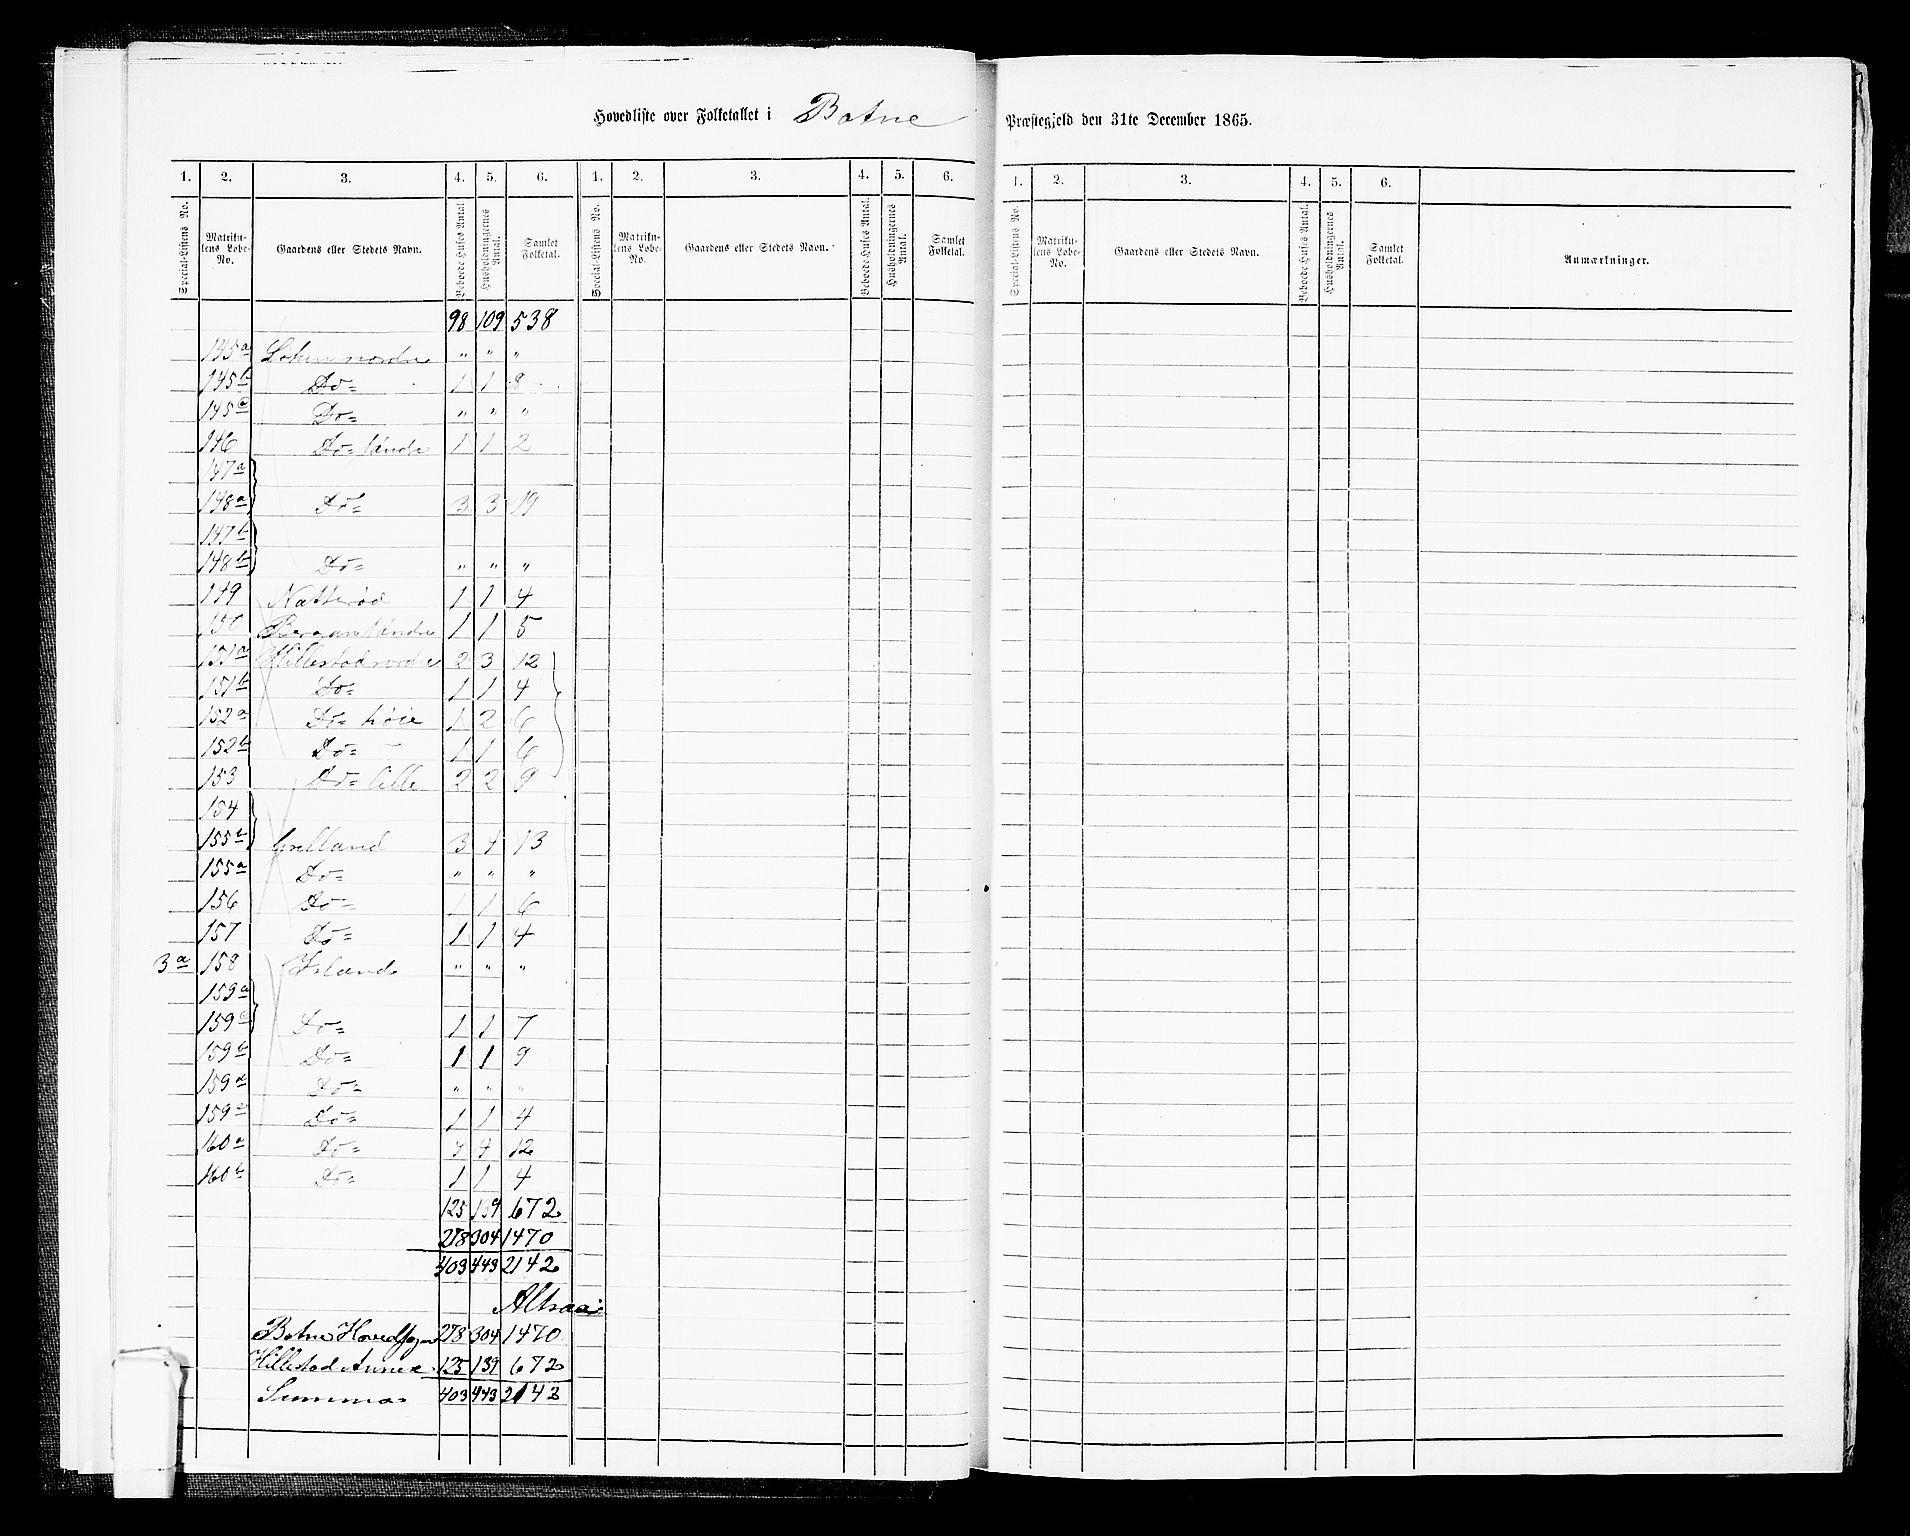 Hovedliste over Folketallet i Botne Præstegjeld den 31te December 1865.
1. 2. 3. 4. 5. 6. 1. 2. 3. 4. 5. 6. 1. 2. 3. 4. 5. 6.
Special-Listens No. Matrikulens Løbe-No. Gaardens eller Stedets Navn. Beboede Huses Antal Husholdningernes Antal. Samlet Folketal.
Special-Listens No. Matrikulens Løbe-No. Gaardens eller Stedets Navn. Beboede Huses Antal. Husholdningernes Antal. Samlet Folketal.
Special-Listens No. Matrikulens Løbe-No. Gaardens eller Stedets Navn. Beboede Huses Antal. Husholdningernes Antal. Samlet Folketal. Anmærkninger.
98 109 538
145a nordre " " "
145b Do= 1 1 8
145c Do= " " "
146 Do= søndre 1 1 2
147a
148a Do= 3 3 19
147b
148b Do= " " "
149 Natterød 1 1 4
150 Bergan søndre 1 1 5
151a Hillestad nordre 2 3 12
151b Do= 1 1 4
152a Do= høie 1 2 6
152b Do= 1 1 6
153 Do= lille 2 2 9
154
155b Grelland 3 4 13
155a Do= " " "
156 Do= 1 1 6
157 Do= 1 1 4
3a 158 Island " " "
159a
159c Do= 1 1 7
159b Do= 1 1 9
159d Do= " " "
159e Do= 1 1 4
160a Do= 4 4 12
160b Do= 1 1 4
125 139 672
278 304 1470
403 443 2142
Altsaa:
Botne Hovedsogn 278 304 1470
Hillestad Annex 125 139 672
Summa 403 443 2142